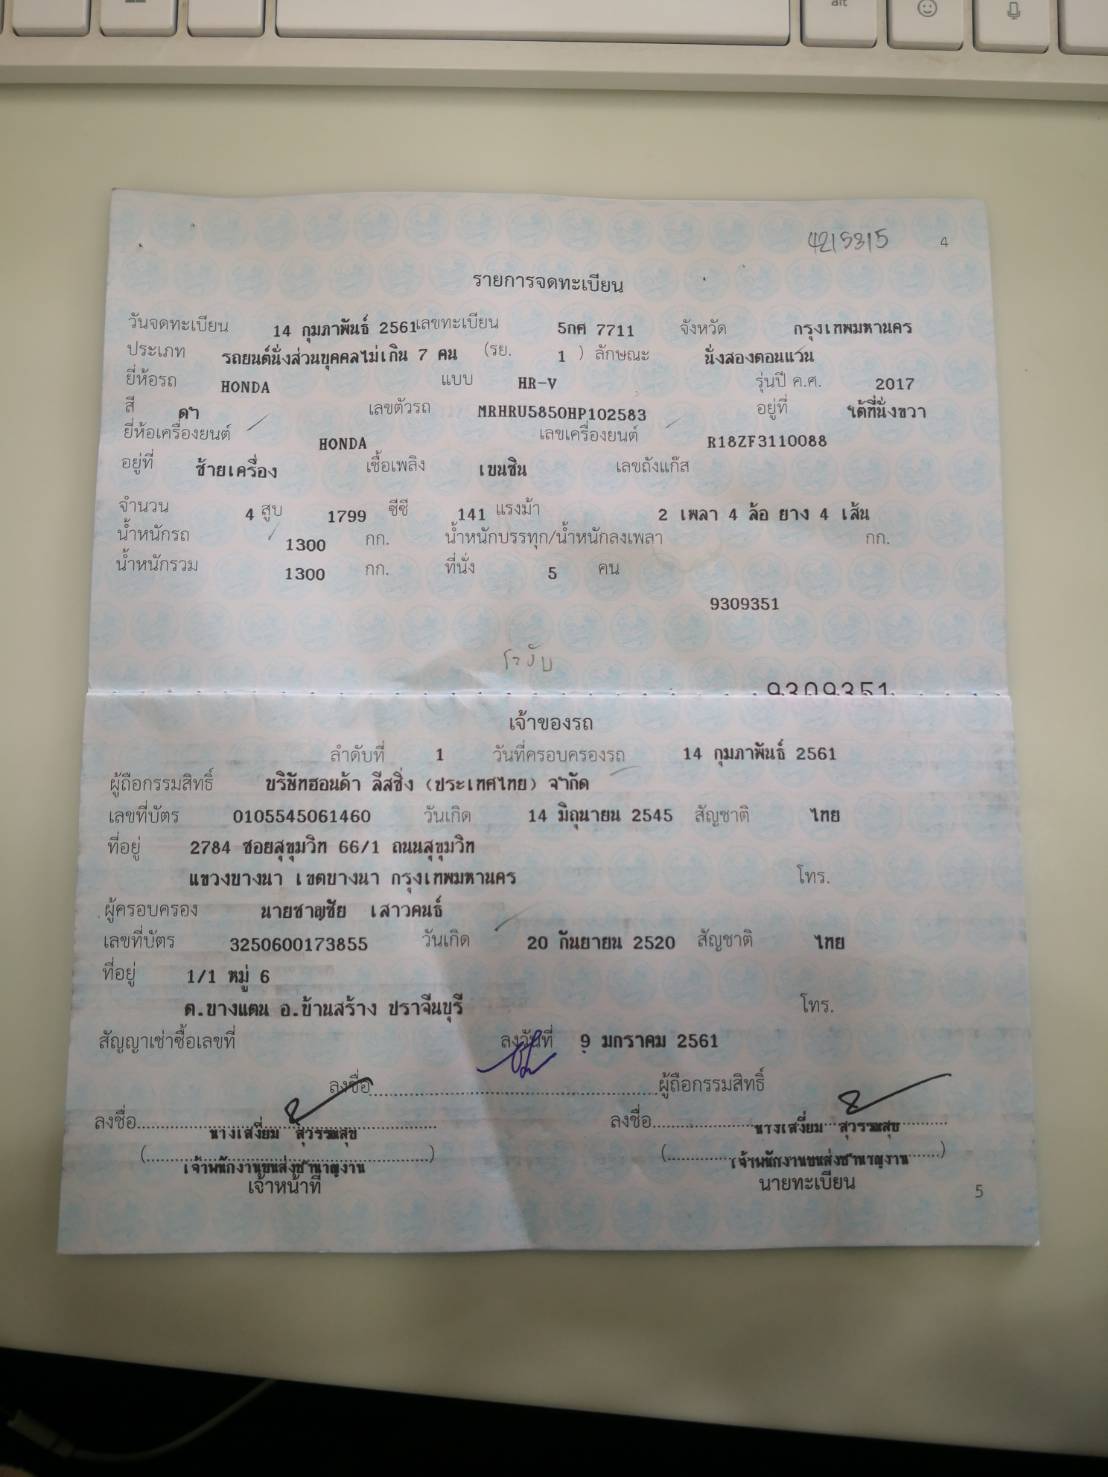 alt
4215315 4
รายการจดทะเบียน
วันจดทะเบียน 14 กุมภาพันธ์ 2561 เลขทะเบียน 5กศ 7711 จังหวัด กรุงเทพมหานคร
ประเภท รถยนต์นั่งส่วนบุคคลไม่เกิน 7 คน (รย. 1 ) ลักษณะ นั่งสองตอนแวน
ยี่ห้อรถ HONDA แบบ HR-V รุ่นปี ค.ศ. 2017
สี ดำ เลขตัวรถ MRHRU5850HP102583 อยู่ที่ ใต้ที่นั่งขวา
ยี่ห้อเครื่องยนต์ HONDA เลขเครื่องยนต์ R18ZF3110088
อยู่ที่ ซ้ายเครื่อง เชื้อเพลิง เบนซิน เลขถังแก๊ส
จำนวน 4 สูบ 1799 ซีซี 141 แรงม้า 2 เพลา 4 ล้อ ยาง 4 เส้น
น้ำหนักรถ 1300 กก. น้ำหนักบรรทุก/น้ำหนักลงเพลา กก.
น้ำหนักรวม 1300 กก. ที่นั่ง 5 คน
9309351
9309351
เจ้าของรถ
ลำดับที่ 1 วันที่ครอบครองรถ 14 กุมภาพันธ์ 2561
ผู้ถือกรรมสิทธิ์ บริษัทฮอนด้า ลีสซิ่ง (ประเทศไทย) จำกัด
เลขที่บัตร 0105545061460 วันเกิด 14 มิถุนายน 2545 สัญชาติ ไทย
ที่อยู่ 2784 ซอยสุขุมวิท 66/1 ถนนสุขุมวิท
แขวงบางนา เขตบางนา กรุงเทพมหานคร โทร.
ผู้ครอบครอง นายชาญชัย เสาวคนธ์
เลขที่บัตร 3250600173855 วันเกิด 20 กันยายน 2520 สัญชาติ ไทย
ที่อยู่ 1/1 หมู่ 6
ต.บางแตน อ.บ้านสร้าง ปราจีนบุรี โทร.
สัญญาเช่าซื้อเลขที่ ลงวันที่ 9 มกราคม 2561
ลงชื่อ ผู้ถือกรรมสิทธิ์
ลงชื่อ นางเสงี่ยม สุวรรณสุข ลงชื่อ นางเสงี่ยม สุวรรณสุข
(เจ้าพนักงานขนส่งชำนาญงาน) (เจ้าพนักงานขนส่งชำนาญงาน)
เจ้าหน้าที่ นายทะเบียน
5